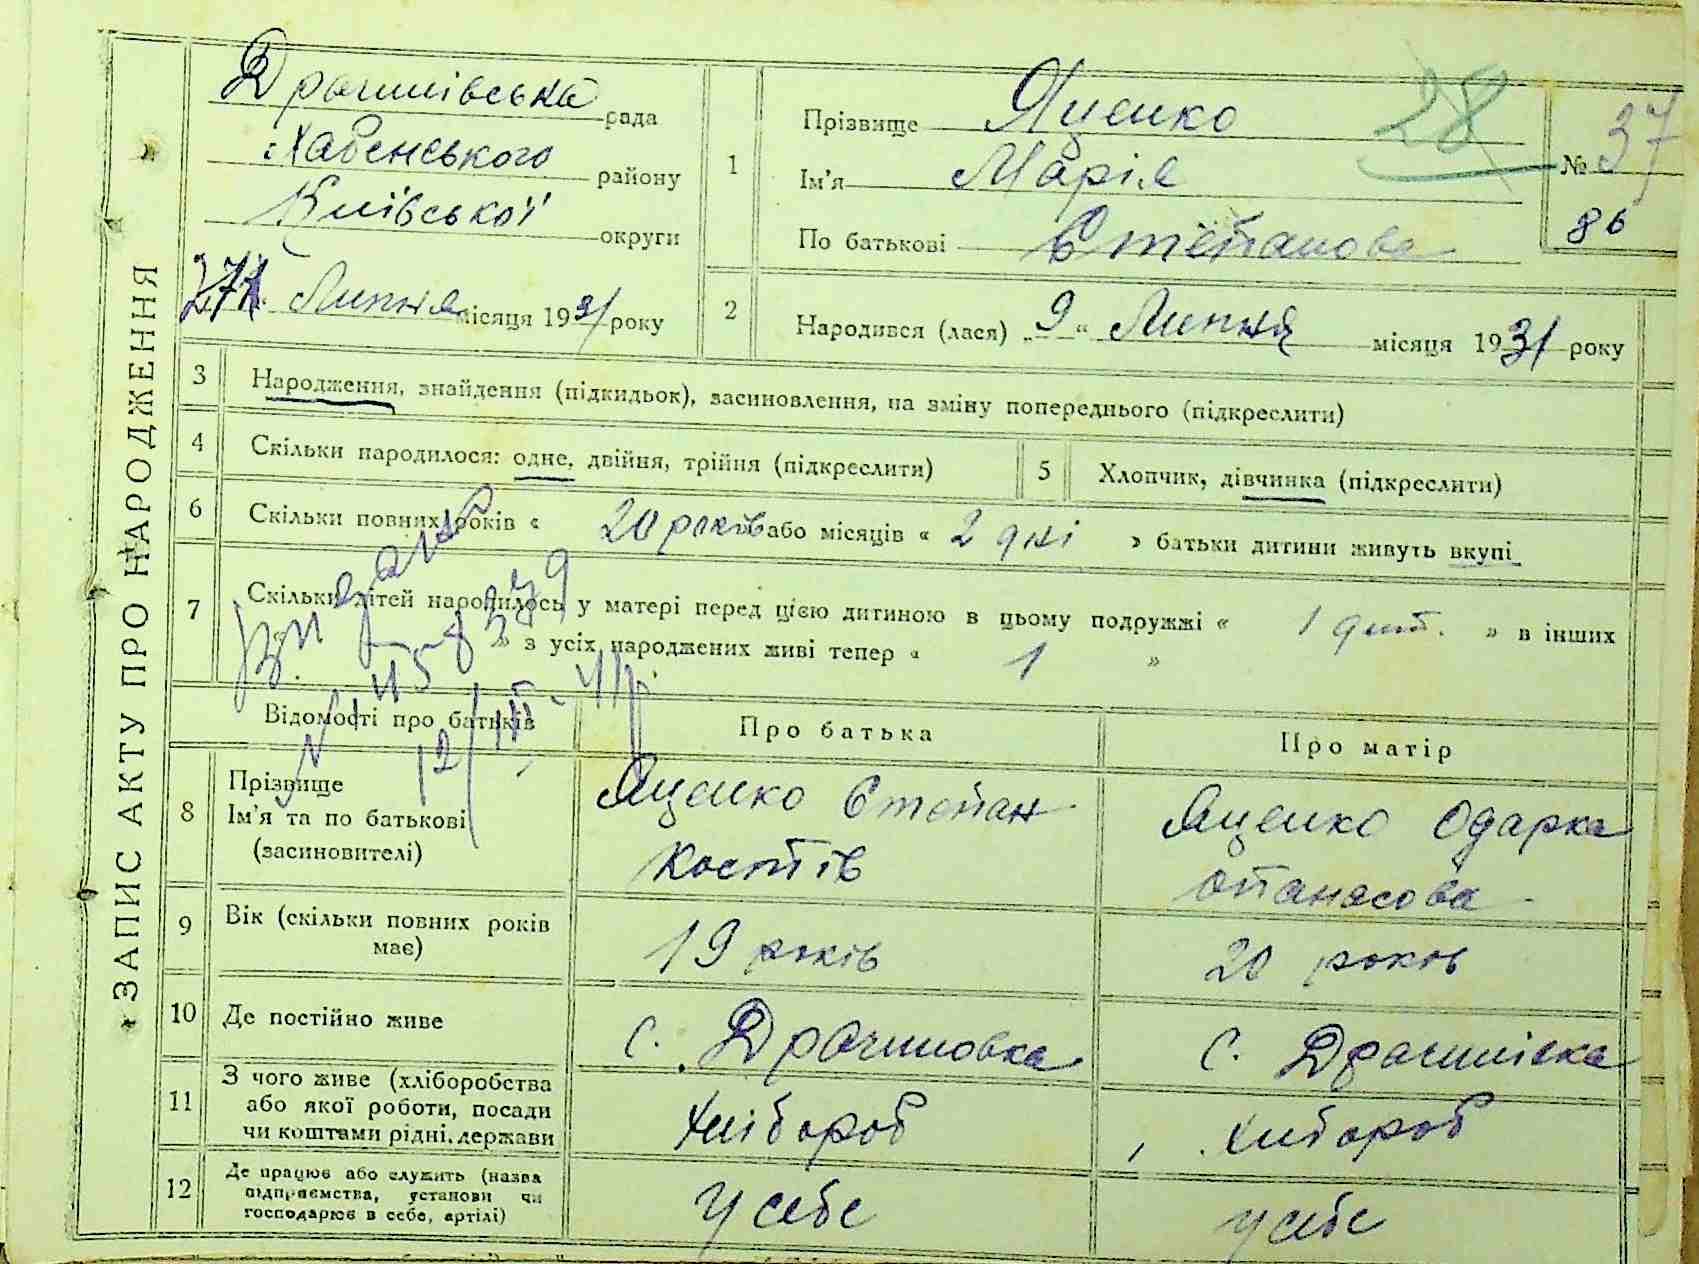 ЗАПИС АКТУ ПРО НАРОДЖЕННЯ
Драчинівська рада
Хабенського району
Київської округи
Липня місяця 1931 року
28
№ 37
86
1 Прізвище Яценко
Ім'я Марія
По батькові Степанова
2 Народився (лася) „9“ Липня місяця 1931 року
3 Народження, знайдення (підкидьок), засиновлення, на зміну попереднього (підкреслити)
4 Скільки народилося: одне, двійня, трійня (підкреслити)
5 Хлопчик, дівчинка (підкреслити)
6 Скільки повних років « 20 років або місяців « 2 дні » батьки дитини живуть вкупі
7 Скільки дітей народилось у матері перед цією дитиною в цьому подружжі « 1 дит. » в інших
» з усіх народжених живі тепер « 1 »
Відомості про батьків
Про батька
Про матір
8 Прізвище
Ім'я та по батькові
(засиновителі)
Яценко Степан
Костів
Яценко Одарка
Опанасова
9 Вік (скільки повних років
має)
19 років
20 років
10 Де постійно живе
с. Драчиновка
с. Драчинівка
11 З чого живе (хліборобства
або якої роботи, посади
чи коштами рідні, держави
Хлібороб
Хлібороб
12 Де працює або служить (назва
підприємства, установи чи
господарює в себе, артілі)
У себе
у себе